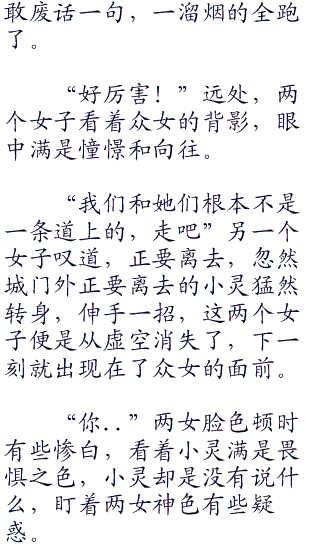 敢废话一句，一溜烟的全跑
了。
“好厉害！”远处，两
个女子看着众女的背影，眼
中满是憧憬和向往。
“我们和她们根本不是
一条道上的，走吧”另一个
女子叹道，正要离去，忽然
城门外正要离去的小灵猛然
转身，伸手一招，这两个女
子便是从虚空消失了，下一
刻就出现在了众女的面前。
“你..”两女脸色顿时
有些惨白，看着小灵满是畏
惧之色，小灵却是没有说什
么，盯着两女神色有些疑
惑。